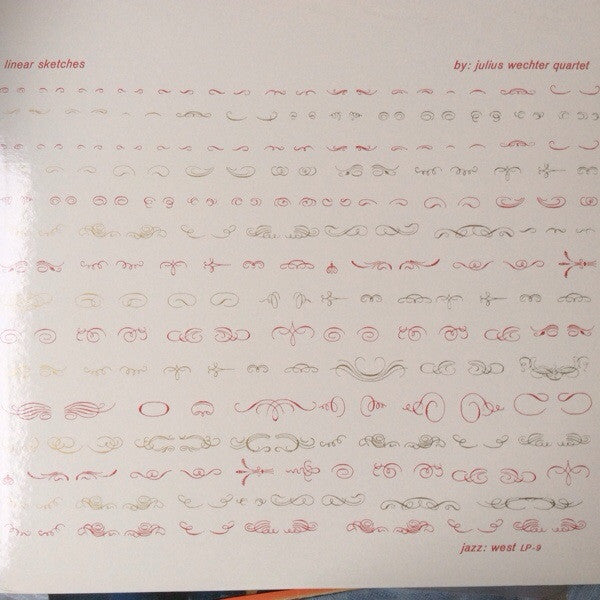 linear sketches
by: julius wechter quartet
jazz: west LP-9